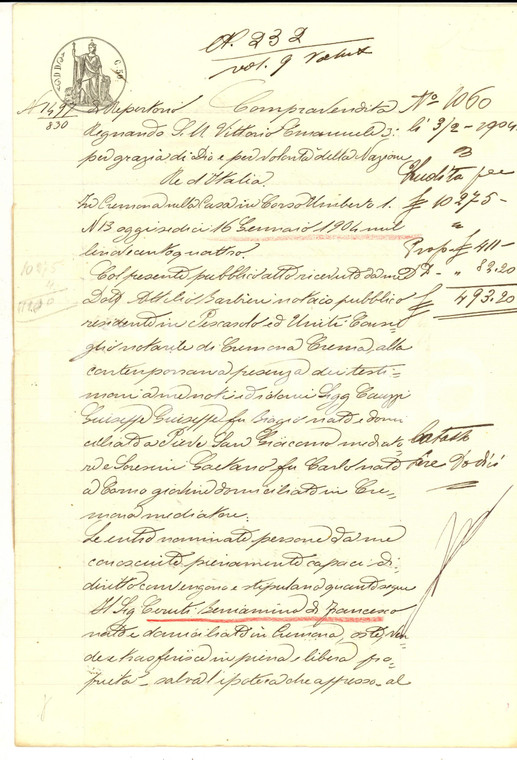 N. 232
vol. 9
N° 1497 di Repertorio Compravendita N° 1060
830
Regnando S. M. Vittorio Emanuele 3: li 3/2-1904
per grazia di Dio e per volontà della Nazione
Re d'Italia.
In Cremona nella Casa in Corso Umberto 1.
£ 10275-
N 13 oggi sedici 16 Gennaio 1904 mil
linovecentoquattro.
Prop £ 411-
10275
Col presente pubblico atto ricevuto da me
D D - " 82.20
Dott. Attilio Barbieri notaio pubblico
£ 493.20
residente in Pescarolo ed Uniti Consi
glio notarile di Cremona Crema, alla
contemporanea presenza dei testi-
moni a me noti ed idonei Sigg Cauzzi
Giuseppe Giuseppe fu Biagio nato e domi
ciliato a Pieve San Giacomo mediato
re e Soresini Gaetano fu Carlo nato
a domiciliato in Cre-
mona mediatore.
Le entro nominate persone da me
conosciute pienamente capaci di
diritto convengono e stipulano quanto segue
Il Sig Ceruti Beniamino di Francesco
nato e domiciliato in Cremona, ven
de e trasferisce in piena e libera pro-
prietà - salva l'ipoteca che appresso - al